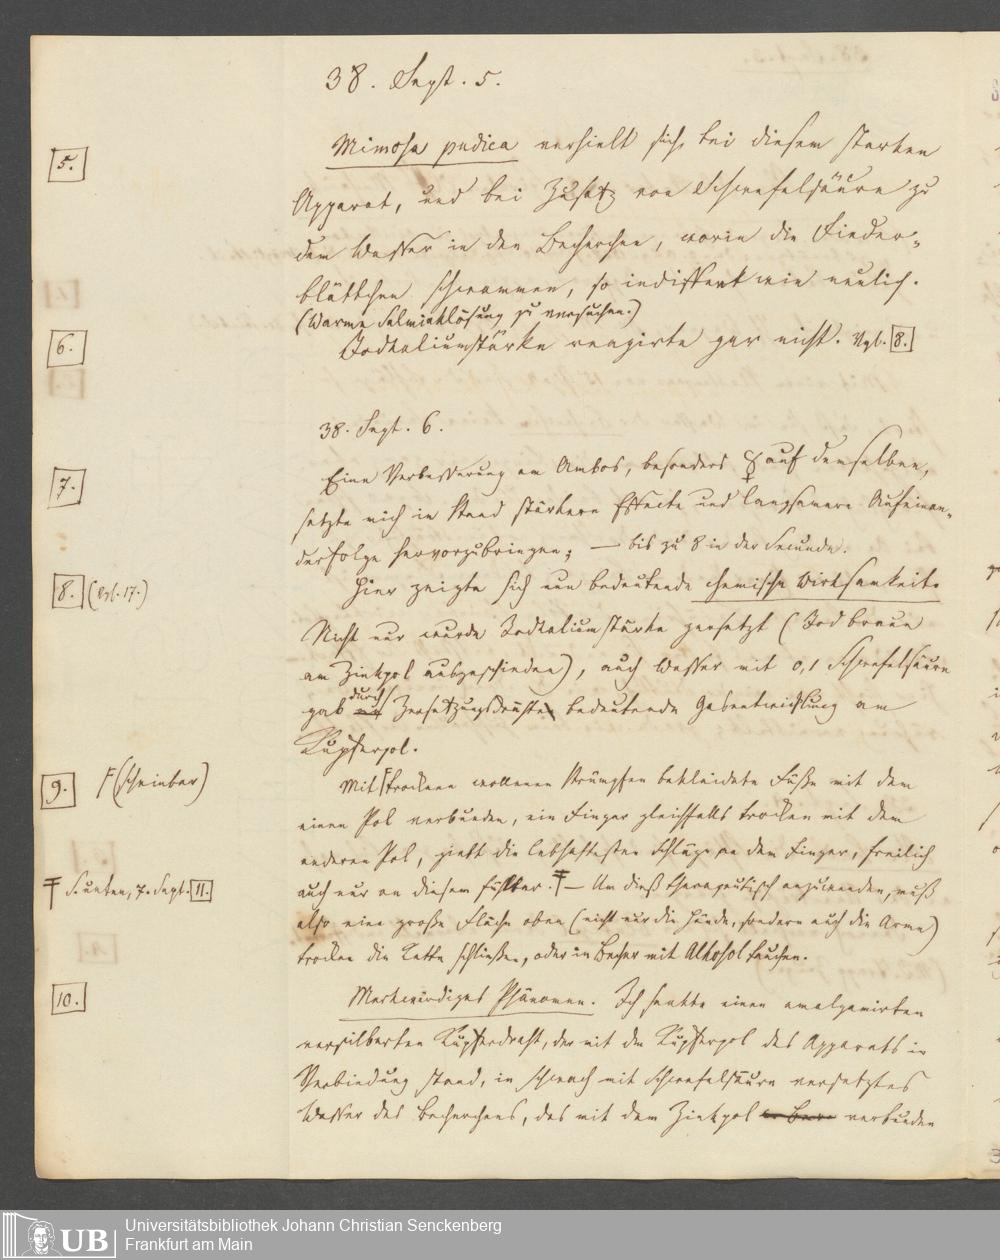 38. Sept. 5.
5.
Mimosa pudica verhielt sich bei diesem starken
Apparat, und bei Zusatz von Schwefelsäure zu
dem Wasser in den Becherchen, worin die Fieder-
blättchen schwammen, so indifferent wie neulich.
(Warme Salmiaklösung zu versuchen.)
6.
Jodkaliumstärke reagirte gar nicht. Vgl. 8.
38. Sept. 6.
7.
Eine Verbesserung am Ambos, besonders auf demselben,
setzte mich in Stand stärkere Effecte und langsamere Aufeinan-
derfolge hervorzubringen; — bis zu 8 in der Secunde.
8. (Vgl. 17.)
Hier zeigte sich nun bedeutende chemische Wirksamkeit.
Nicht nur wurde Jodkaliumstärke zersetzt (Jod braun
am Zinkpol ausgeschieden), auch Wasser mit 0,1 Schwefelsäure
gab durch Zersetzungsdrähte bedeutende Gasentwicklung am
Kupferpol.
9. (scheinbar)
Mit trockenen wollenen Strümpfen bekleidete Füße mit dem
einen Pol verbunden, ein Finger gleichfalls trocken mit dem
anderen Pol, giebt die lebhaftesten Schläge an dem Finger, freilich
auch nur an diesem fühlbar. — Um dieß therapeutisch anzuwenden, muß
S. unten, 7. Sept. 11.
also eine große Fläche oben (nicht nur die Hände, sondern auch die Arme)
trocken die Kette schließen, oder in Becher mit Alkohol tauchen.
10.
Merkwürdiges Phänomen. Ich hatte einen amalgamirten
versilberten Kupferdraht, der mit dem Kupferpol des Apparats in
Verbindung stand, in schwach mit Schwefelsäure versetztes
Wasser des Becherchens, das mit dem Zinkpol verbunden
Universitätsbibliothek Johann Christian Senckenberg
Frankfurt am Main
UB